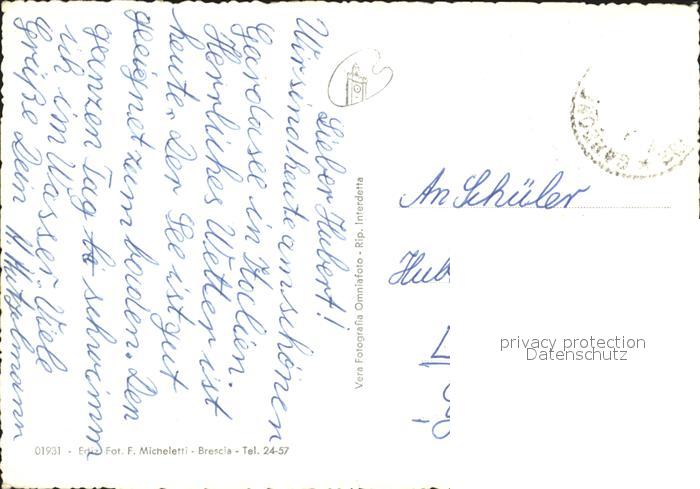 Lieber Hubert!
Wir sind heute am schönen
Gardasee in Italien.
Herrliches Wetter ist
heute. Der See ist gut
geeignet zum baden. Den
ganzen Tag schwimm
ich im Wasser. Viele
Grüße Dein
An Schüler
Hub
privacy protection
Datenschutz
Vera Fotografia Omniafoto - Rip. Interdetta
01931 - Ediz. Fot. F. Micheletti - Brescia - Tel. 24-57